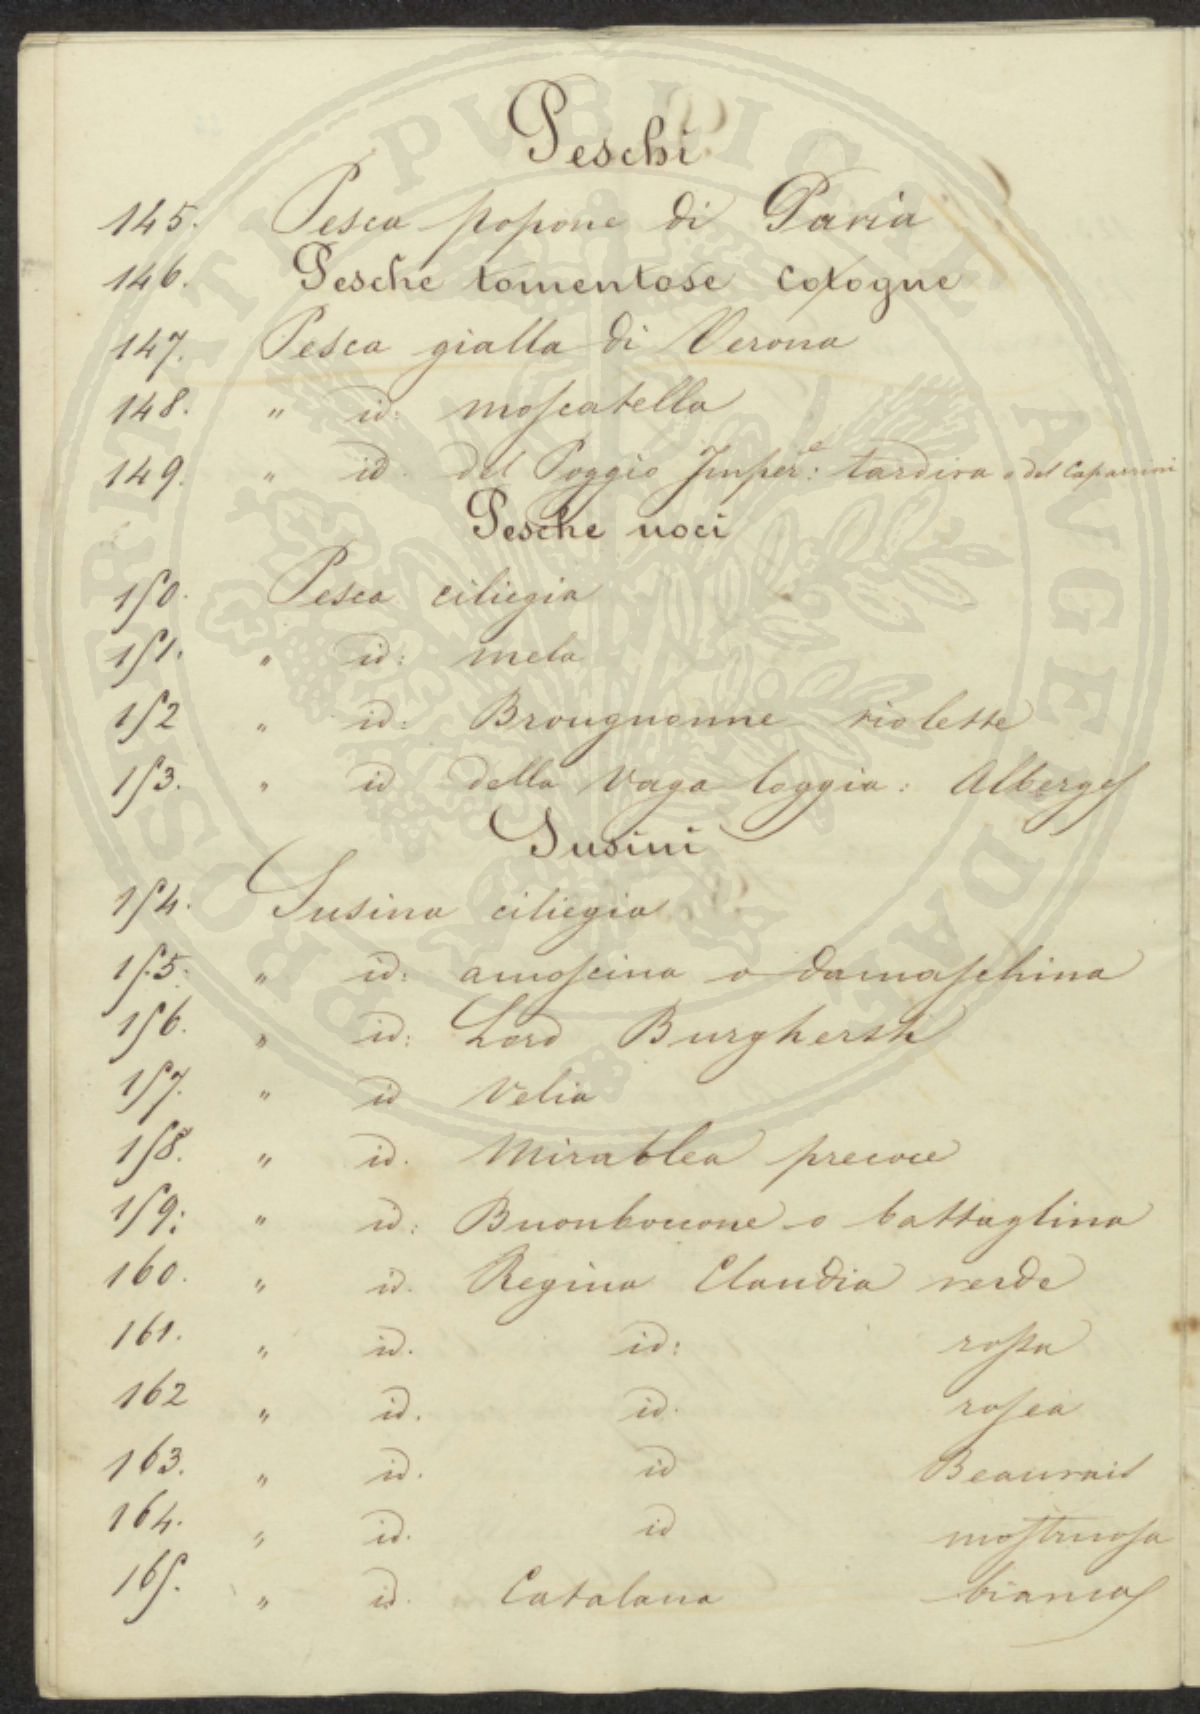 Peschi
145. Pesca popone di Pavia
146. Pesche tomentose cotogne
147. Pesca gialla di Verona
148. " id: moscatella
149. " id. del Poggio Imper.e: tardiva o del Caparrini
Pesche noci
150. Pesca ciliegia
151. " id: mela
152 " id: Brougnonne violette
153. " id della Vaga loggia: Alberges
Susini
154. Susina ciliegia
155. " id: amoscina o damaschina
156. " id: Lord Burghersh
157. " id Velia
158. " id. Mirablea precoce
159: " id: Buonboccone o battaglina
160. " id. Regina Claudia verde
161. " id. id: rossa
162 " id. id. rosea
163. " id. id Beauvais
164. " id. id mostruosa
165. " id. Catalana bianca
PROSPERITATI PUBLICAE AUGENDAE